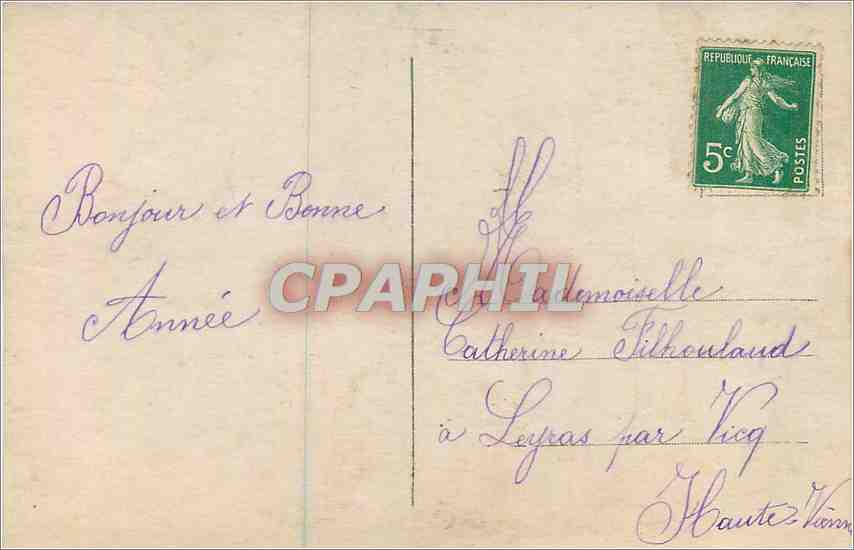 REPUBLIQUE FRANÇAISE
5c
POSTES
Bonjour et Bonne
Année
CPAPHIL
Mademoiselle
Catherine Filhoulaud
à Leyras par Vicq
Haute-Vienn